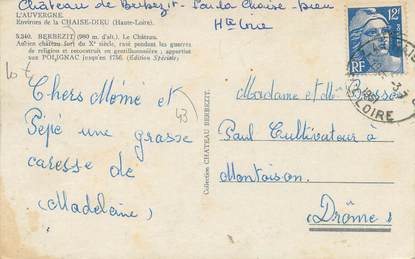 Château de Berbezit - par la Chaise-Dieu
Hte Loire
L'AUVERGNE.
Environs de la CHAISE-DIEU (Haute-Loire).
5.240. BERBEZIT (980 m. d'alt.). Le Château.
Ancien château fort du Xe siècle, rasé pendant les guerres
de religion et reconstruit en gentilhommière ; appartint
aux POLIGNAC jusqu'en 1756. (Edition Spéciale)
Chers Mémé et
Pépé une grasse
caresse de
(Madelaine)
43
Collection CHATEAU BERBEZIT.
12F
RF
LOIRE
Madame et Mr
Paul Cultivateur à
Montoison
(Drôme)